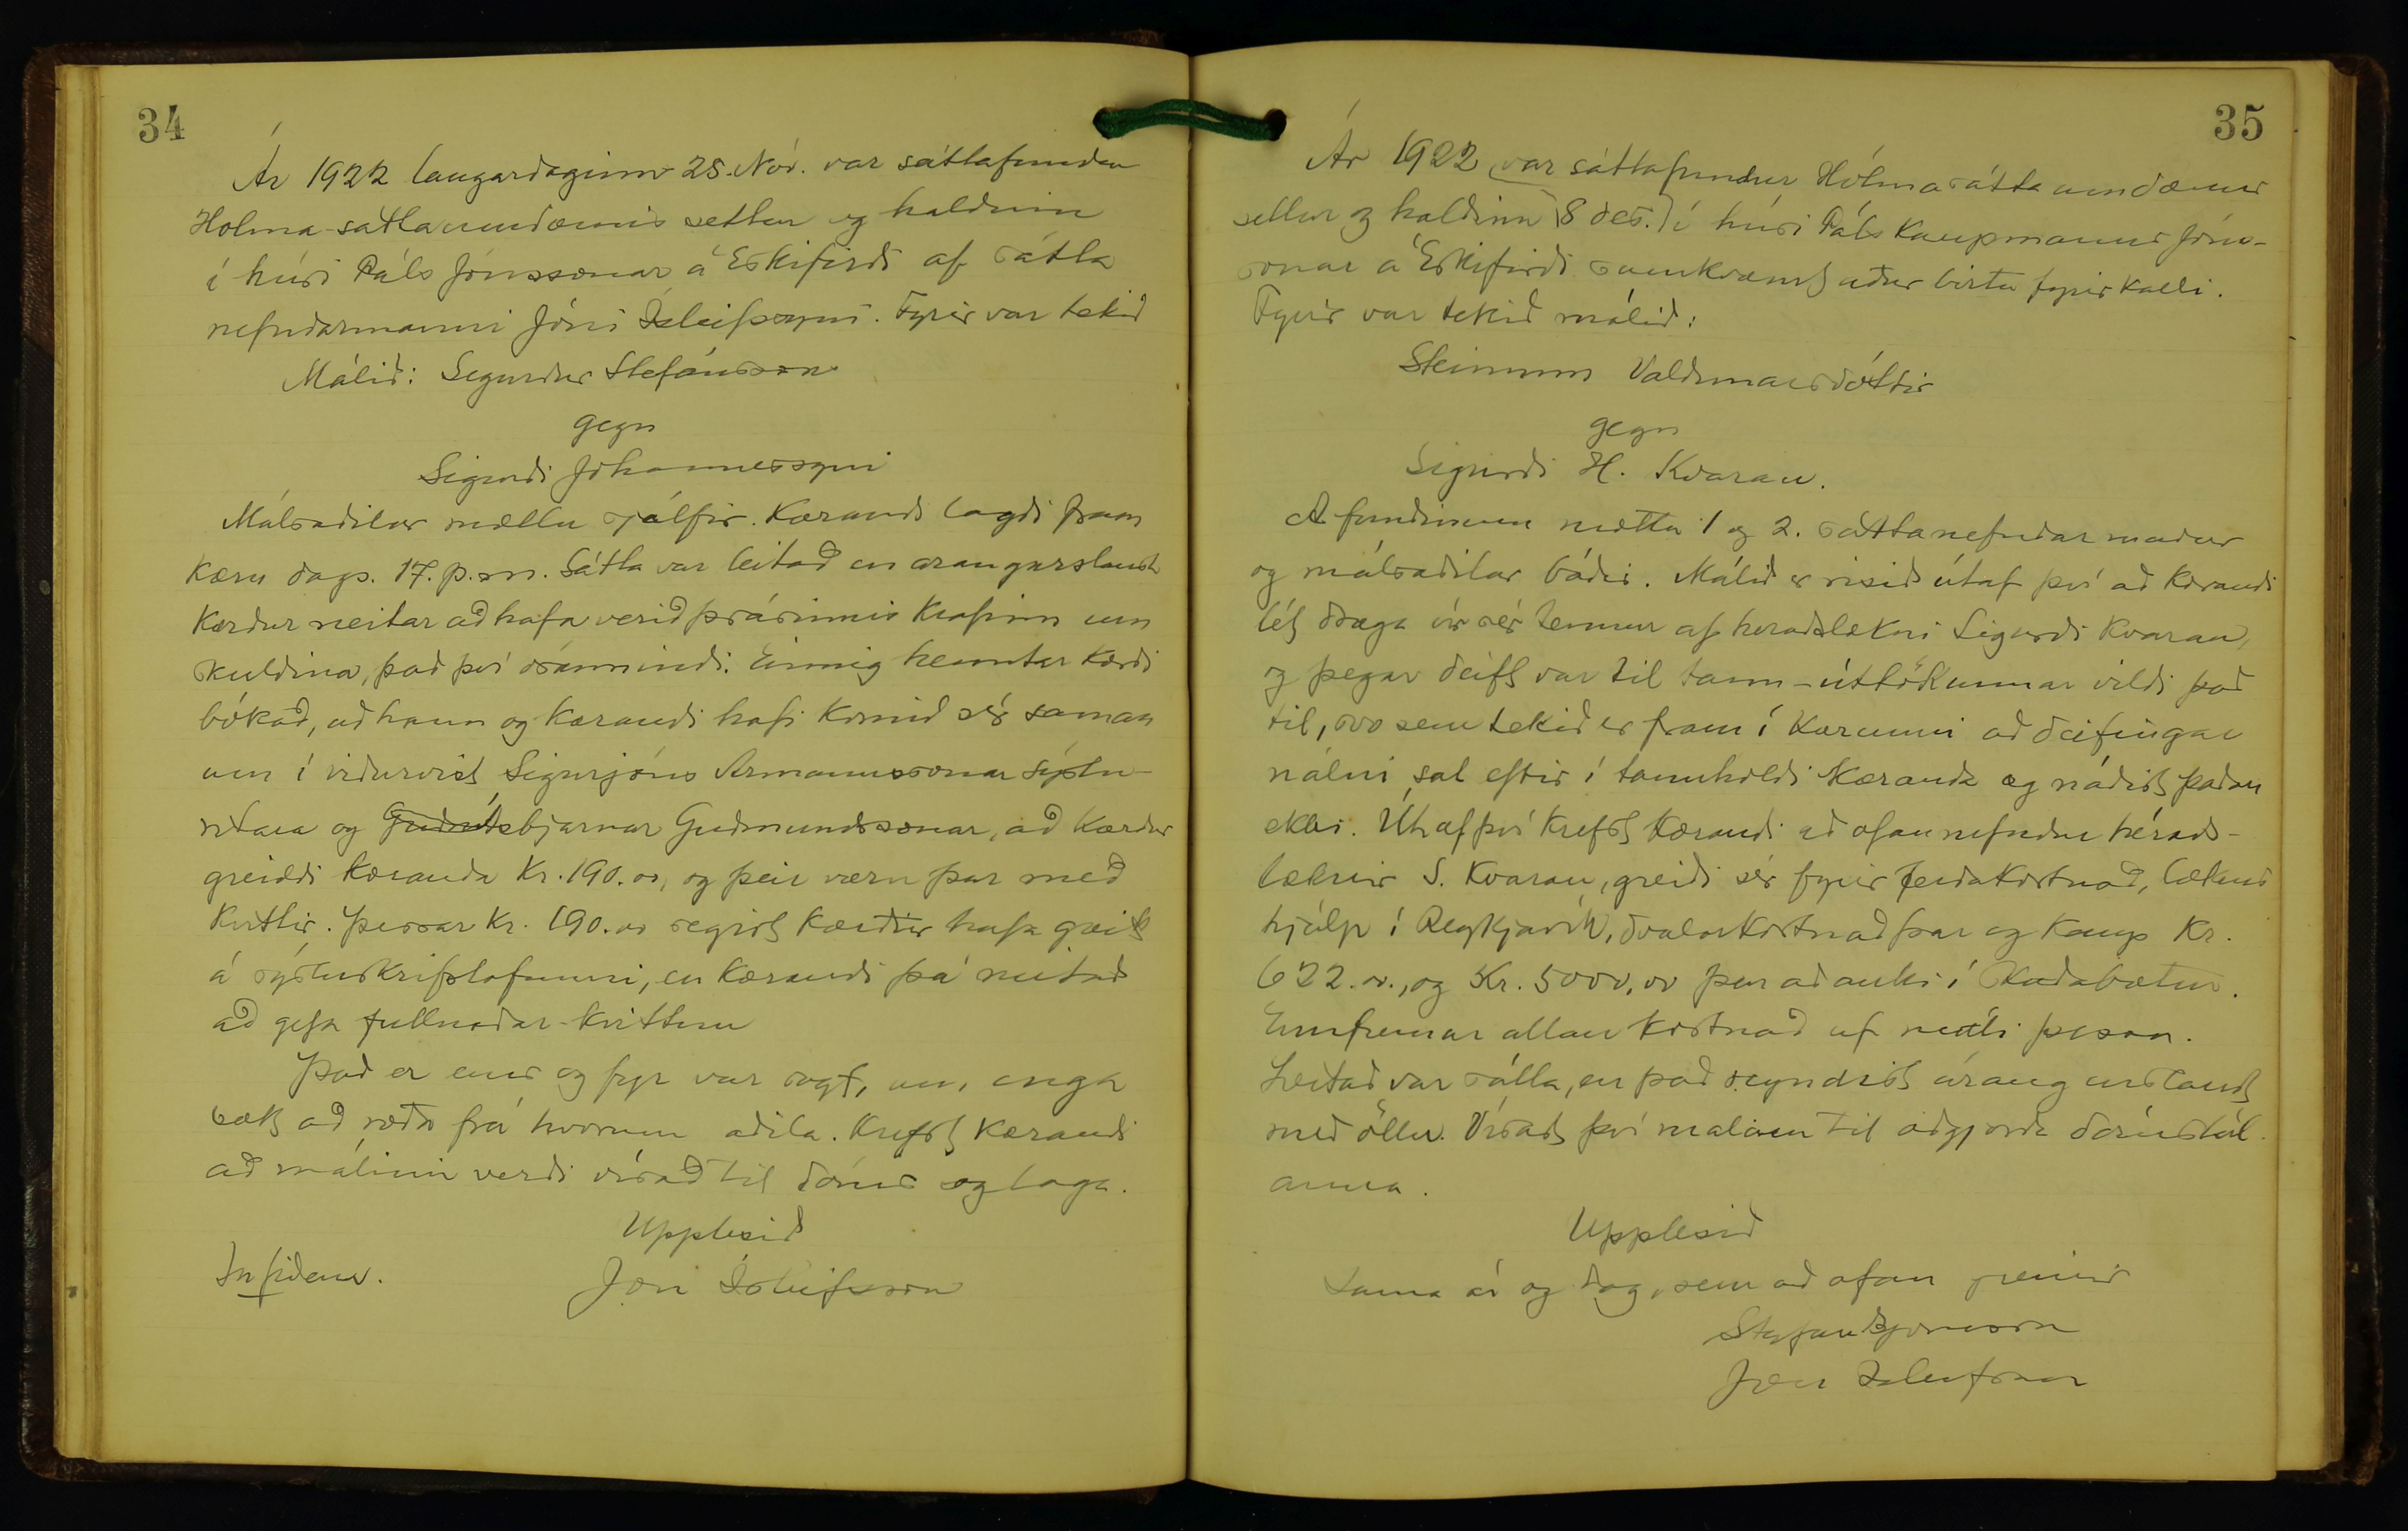 34
Ár 1922 laugardaginn 25. Nóv. var sáttafundur
Hólma-sáttaumdæmis settur og haldinn
í húsi Páls Jónssonar á Eskifirði af sátta
nefndarmanni Jóni Ísleifssyni. Fyrir var tekið
Málið: Sigurður Stefánsson
gegn
Sigurði Jóhannessyni
Málsaðilar mættu sjálfir. Kærandi lagði fram
kæru dags. 17. þ.m. Sátta var leitað en árangurslaust
Kærður neitar að hafa verið þrásinnis krafinn um
skuldina, það því ósannindi. Einnig heimtar kærði
bókað, að hann og kærandi hafi komið sér saman
um í viðurvist Sigurjóns Ármannssonar sýslu-
ritara og Ásbjarnar Guðmundssonar, að kærður
greiddi kæranda Kr. 190.00, og þeir væru þar með
kvittir. Þessar Kr. 190.00 segist kærður hafa greitt
á sýsluskrifstofunni, en kærandi þá neitað
að gefa fullnaðar-kvittun
Það er eins og fyr var sagt, um, enga
sætt að ræða frá hvorum aðila. Krefst kærandi
að málinu verði vísað til dóms og laga.
Upplesið
In fidem.
Jón Ísleifsson
35
Ár 1922 var sáttafundur Hólmasáttaumdæmis
settur og haldinn (8 des.) í húsi Páls kaupmanns Jóns-
sonar á Eskifirði samkvæmt áður birtu fyrirkalli.
Fyrir var tekið málið:
Steinunn Valdimarsdóttir
gegn
Sigurði H. Kvaran.
Á fundinum mættu 1 og 2. sáttanefndarmaður
og málsaðilar báðir. Málið er risið útaf því að kærandi
lét draga úr sér tennur af heraðslækni Sigurði Kvaran,
og þegar deift var til tann-úttökunnar vildi það
til, svo sem tekið er fram í kærunni að deifingar
nálin sat eftir í tannholdi kæranda og náðist þaðan
ekki. Út af því krefst kærandi að ofannefndur héraðs-
læknir S. Kvaran, greiði sér fyrir ferðakostnað, læknis
hjálp í Reykjavík, dvalarkostnað þar og kaup Kr.
622.00., og Kr. 5000,00 þar að auki í skaðabætur.
Ennfremur allan kostnað af máli þessu.
Leitað var sátta, en það reyndist árangurslaust
með öllu. Vísast því málinu til aðgjörða dómstól-
anna.
Upplesið
Sama ár og dag, sem að ofan greinir
Stefán Björnsson
Jón Ísleifsson